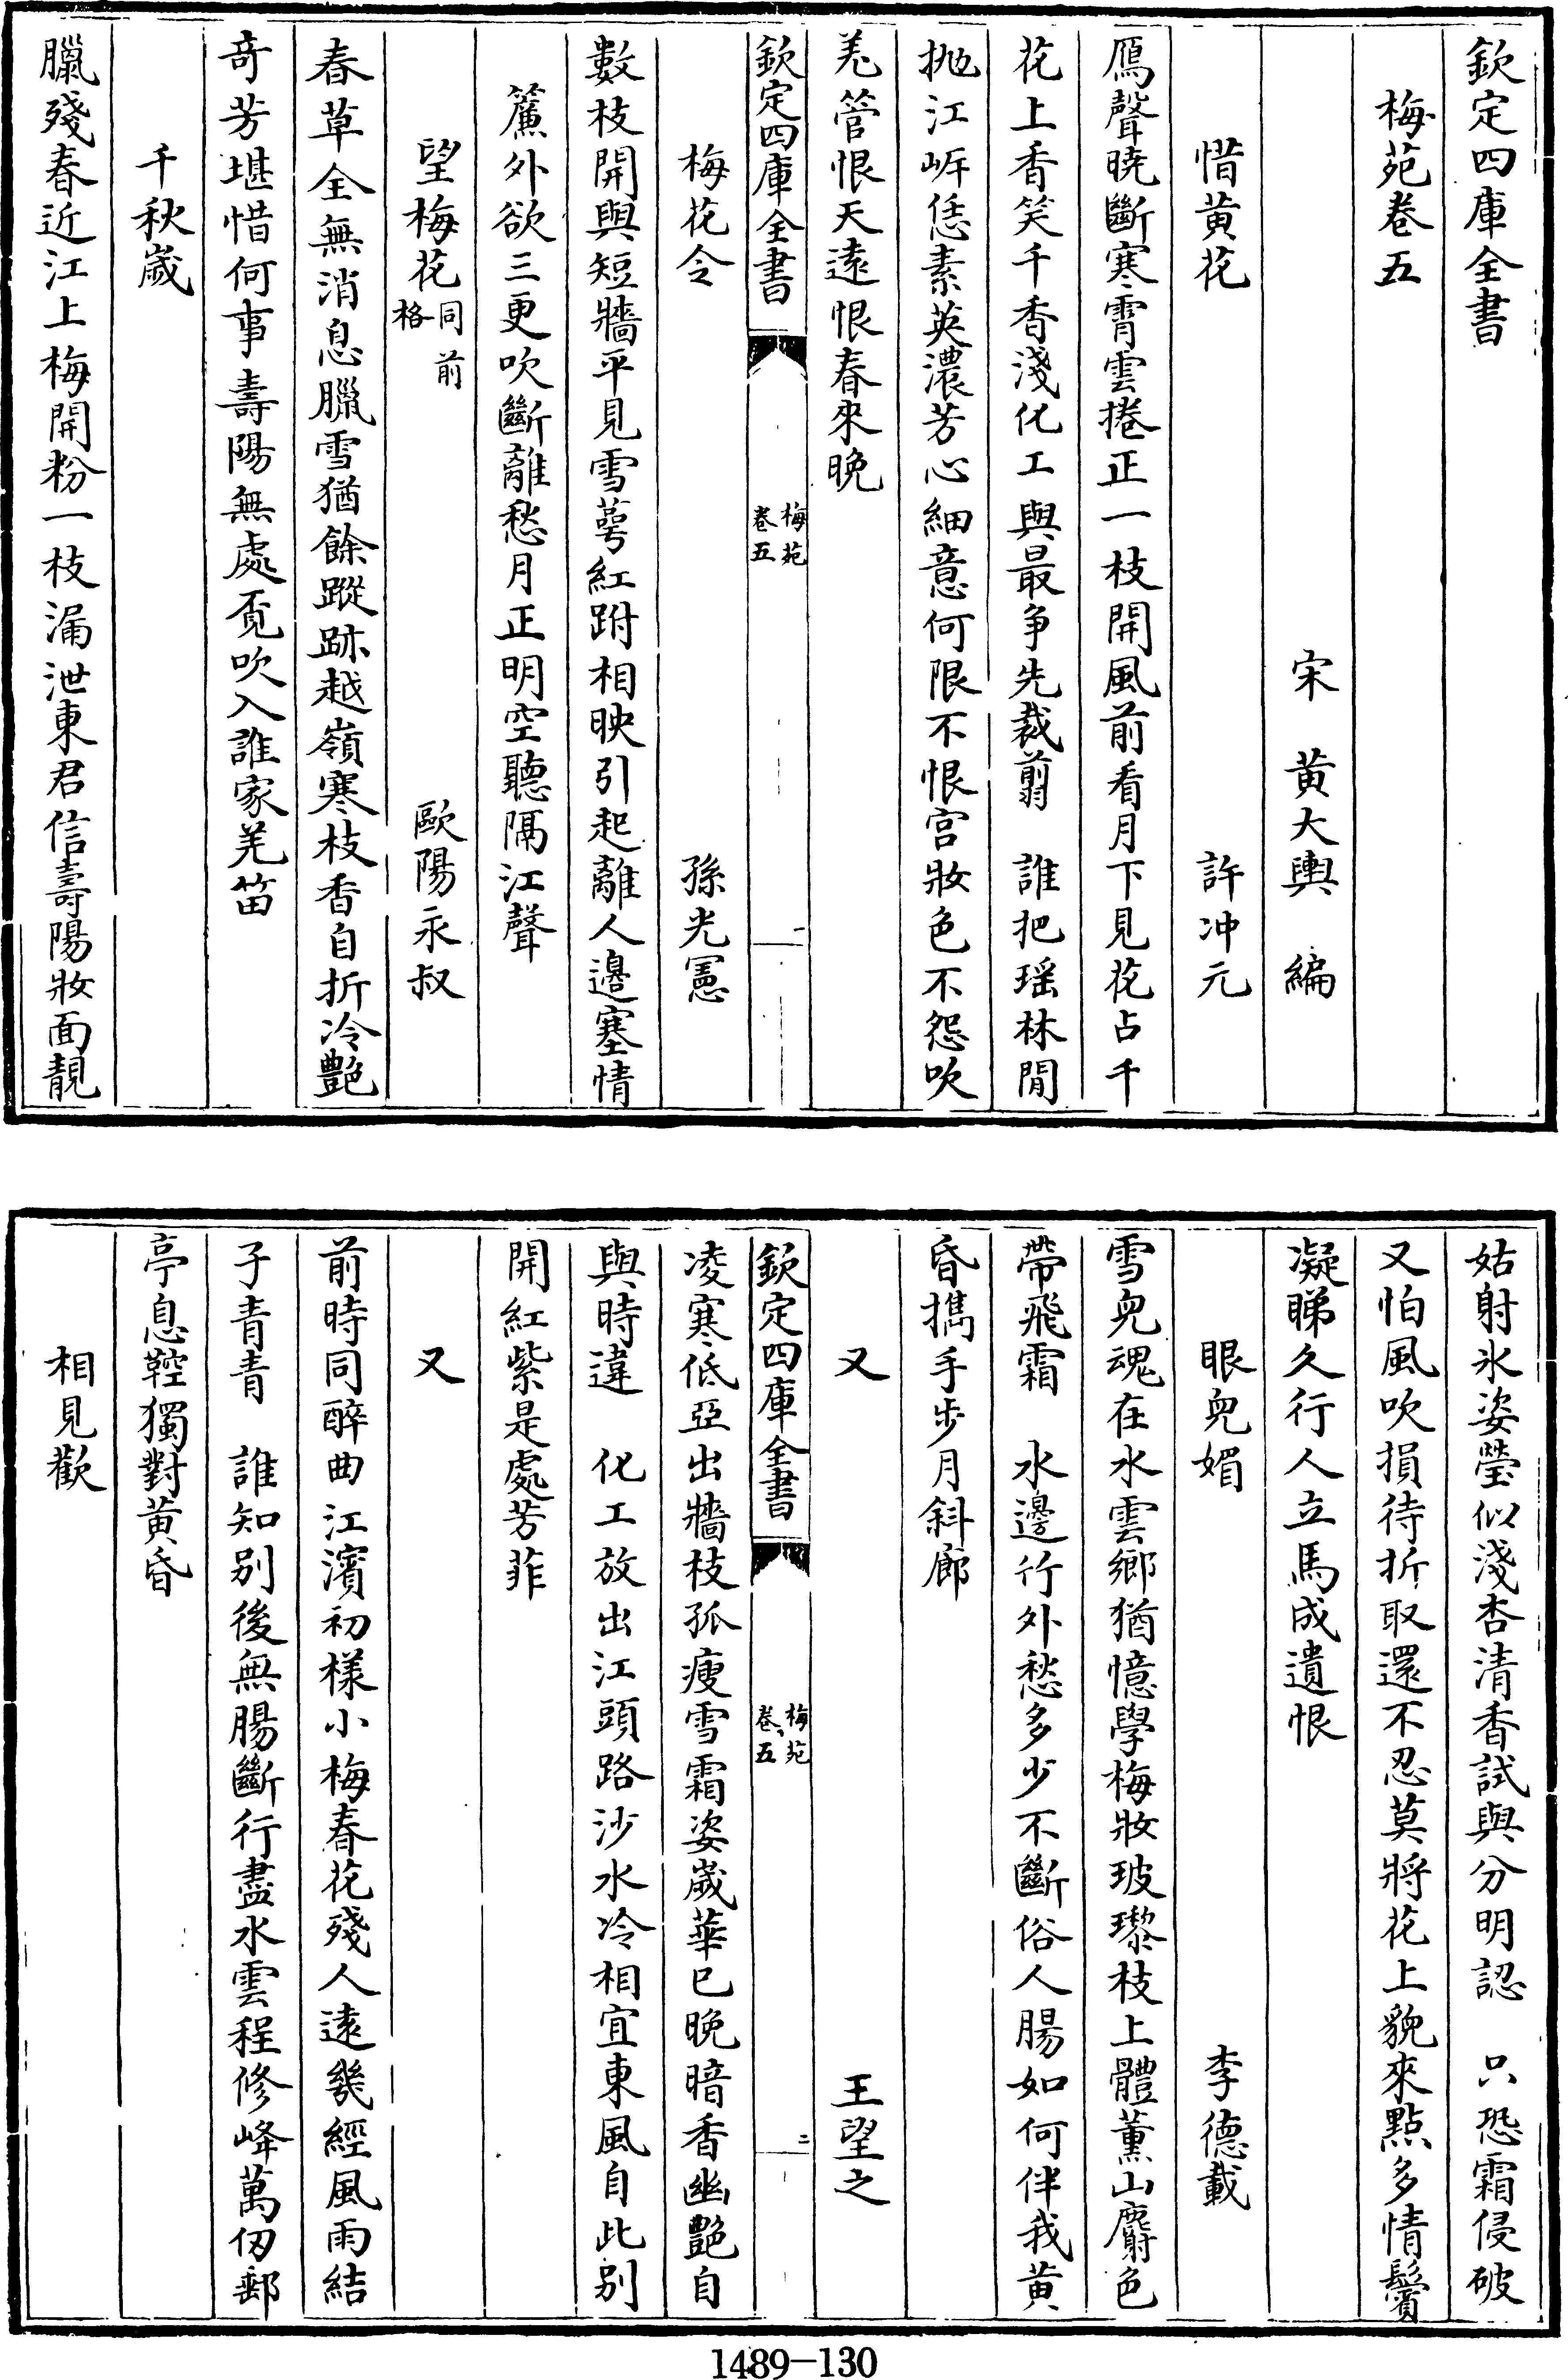 欽定四庫全書
梅苑卷五
宋　黄大輿　編
惜黄花　許冲元
鴈聲曉斷寒霄雲捲正一枝開風前看月下見花占千
花上香笑千香淺化工與最争先裁翦　誰把瑶林閒
抛江岍恁素英濃芳心細意何限不恨宫妝色不怨吹
羌管恨天遠恨春來晚
欽定四庫全書　梅苑卷五　一
梅花令　孫光憲
數枝開與短牆平見雪蕚紅跗相映引起離人邉塞情
簾外欲三更吹斷離愁月正明空聽隔江聲
望梅花同前格　歐陽永叔
春草全無消息臘雪猶餘蹤跡越嶺寒枝香自折冷艷
竒芳堪惜何事壽陽無處覔吹入誰家羌笛
千秋嵗
臘殘春近江上梅開粉一枝漏泄東君信壽陽妝面靚
姑射氷姿瑩似淺杏清香試與分明認　只恐霜侵破
又怕風吹損待折取還不忍莫將花上貌來㸃多情鬢
凝睇久行人立馬成遺恨
眼兒媚　李德載
雪兒魂在水雲鄉猶憶學梅妝玻瓈枝上體薰山麝色
帶飛霜　水邊竹外愁多少不斷俗人腸如何伴我黄
昏攜手步月斜廊
又　王望之
凌寒低亞出牆枝孤瘦雪霜姿嵗華已晚暗香幽艷自
與時違　化工放出江頭路沙水冷相宜東風自此别
開紅紫是處芳菲
欽定四庫全書　梅苑卷五　二
又
前時同醉曲江濱初樣小梅春花殘人遠幾經風雨結
子青青　誰知别後無腸斷行盡水雲程修峰萬仞郵
亭息鞚獨對黄昏
相見歡
1489—130